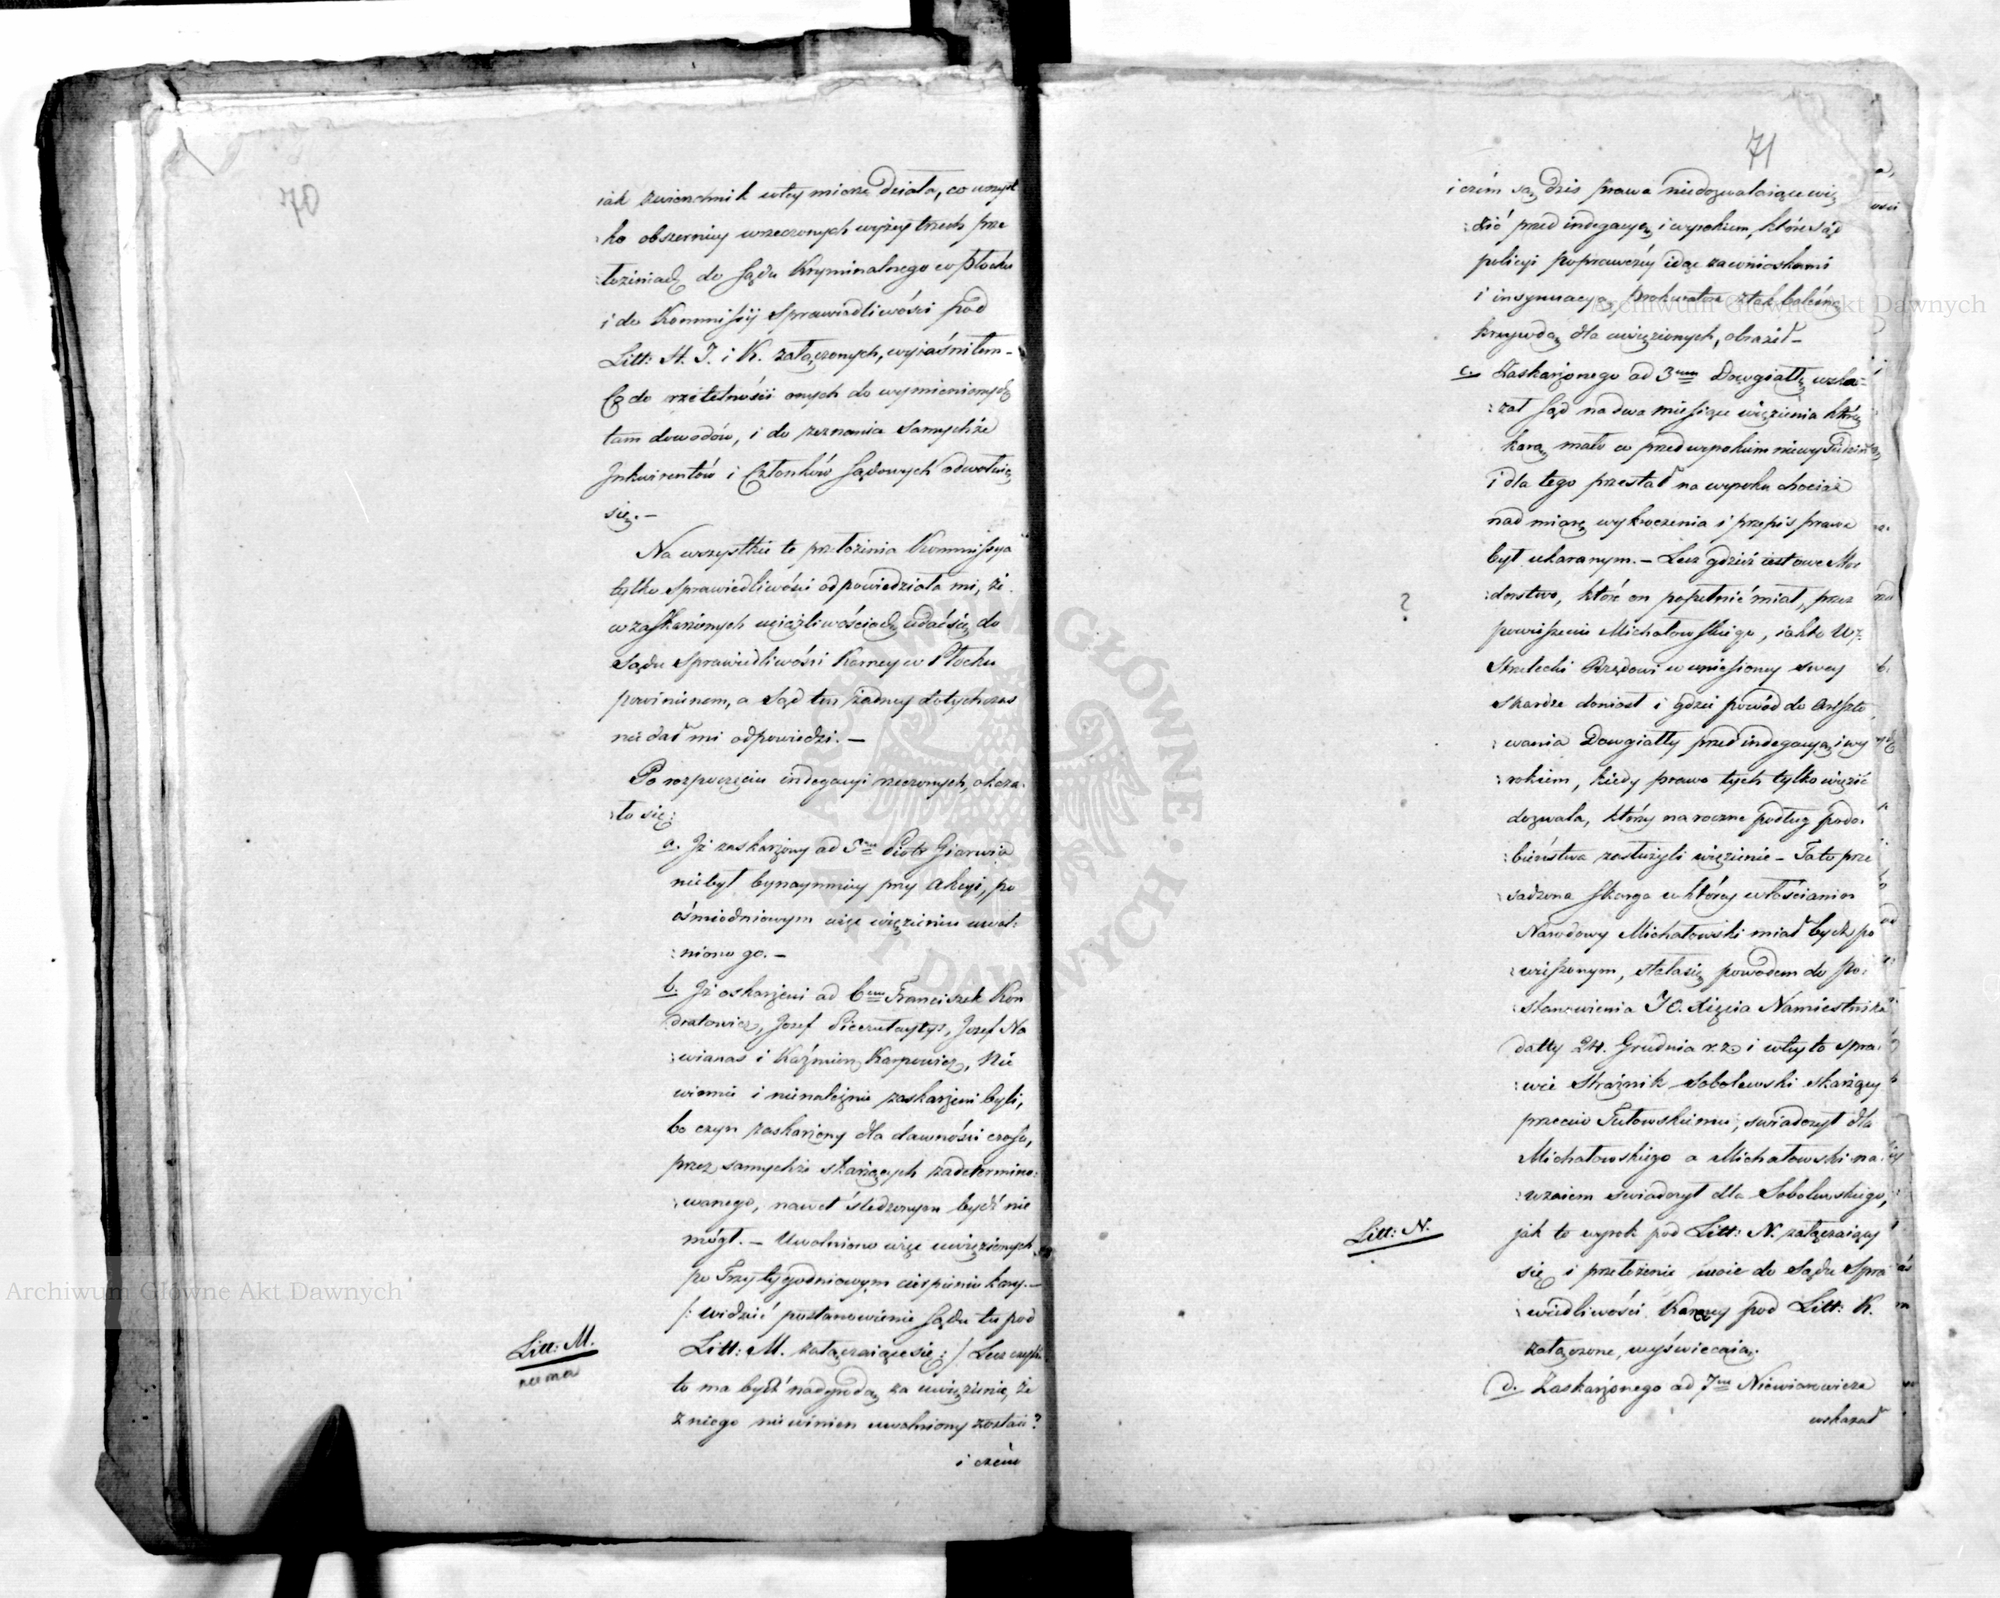 70
iak zwierzchnik w tey mierze działa, co wszyst
:ko obszerniey w rzeczonych wyżey trzech prze
:łożeniach do Sądu Kryminalnego w Płocku
i do Kommissyi Sprawiedliwości pod
Litt: H. J. i K. załączonych, wyiaśniłem. –
Co do rzetelności onych do wymienionych
tam dowodów, i do zeznania samychże
Inkwirentów i Członków Sądowych odwołuię
się. –
Na wszystkie te przełożenia Kommissya
tylko Sprawiedliwości odpowiedziała mi, że
w zaskarżonych uciążliwościach udać się do
Sądu Sprawiedliwości Karney w Płocku
powinienem, a Sąd ten żadney dotychczas
nie dał mi odpowiedzi. –
Po rozpoczęciu indegacyi rzeczonych, okaza:
:ło się:
a. Iż zaskarżony ad 5um Piotr Giarwia
nie był bynaymniey przy akcyi, po
ośmiodniowym więc więzieniu uwol:
:niono go. –
b. Iż oskarżeni ad 6um Franciszek Kon
dratowicz, Jozef Jozef Na
:wianas i Kaźmierz Karpowicz, nie
winnie i nienależnie zaskarżeni byli,
bo czyn zaskarżony dla dawności czasu,
przez samychże skarżących zadetermino:
:wanego, nawet śledzonym bydź nie
mógł. – Uwolniono więc uwięzionych
po Trzytygodniowym cierpieniu kary. –
/: widzieć postanowienie Sądu tu pod
Litt: M. załączaiące się :/ Lecz czyliż
to ma bydź nadgrodą za uwięzienie, że
z niego niewinien uwolniony zostaie?
i czém
Litt: M.
nie ma
71
i czém są dziś prawa niedozwalaiące wię
:zić przed indegacyą i wyrokiem, które Sąd
policyi poprawczéy idąc za wnioskami
i insynuacyą Prokuratora z tak boleśną
krzywdą dla uwięzionych, obraził –
c. Zaskarżonego ad 3um Dowgiałłę wska:
:zał Sąd na dwa miesiące więzienia którą
karę mało co przed wyrokiem
i dla tego przestał na wyroku chociaż
nad miarę wykroczenia i przepis prawa
był ukaranym. – Lecz gdzież iest owe Mor
:derstwo, które on popełnić miał, przez
powieszenie Michałowskiego, iak to W.
Strzelecki Rządowi w wniesioney swey
skardze doniosł i gdzie powód do Areszto
:wania Dowgiałły przed indegacyą i wy
:rokiem, kiedy prawo tych tylko więzić
dozwala, którzy na roczne podług podo:
:bieństwa zasłużyli więzienie – Ta to prze
:sadzona skarga w którey włościanin
Narodowy Michałowski miał bydź po
:wieszonym, stała się powodem do Po:
:stanowienia JO. Xięcia Namiestnika
datty 24. Grudnia r. z. i w tey to spra:
:wie Strażnik Sobolewski skarżący
przeciw Tutowskiemu, świadczył dla
Michałowskiego a Michałowski na:
:wzaiem świadczył dla Sobolewskiego,
jak to wyrok pod Litt: N. załączaiący
się i przełożenie moie do Sądu Spra
:wiedliwości Karney pod Litt: K.
załączone, wyświecaią.
d. Zaskarżonego ad 7um Niewiarowicza
wskazał
?
Litt: N.
Archiwum Główne Akt Dawnych
Archiwum Główne Akt Dawnych
ARCHIWUM GŁÓWNE AKT DAWNYCH